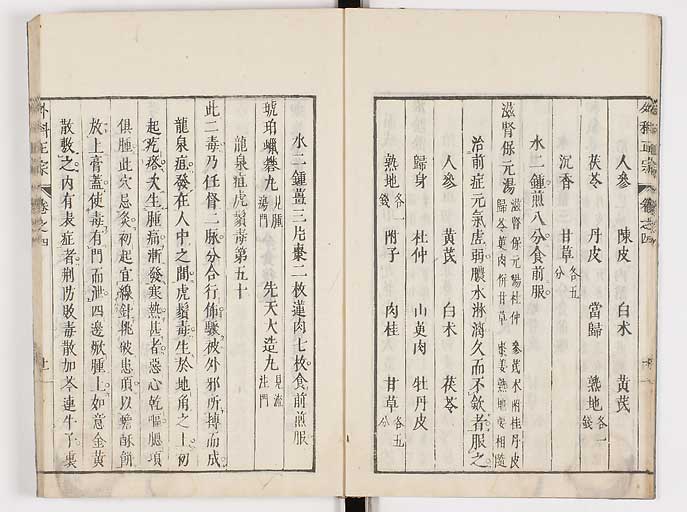 外科正宗 卷之四
人參 陳皮 白朮 黃芪
茯苓 丹皮 當歸 熟地 各一錢
沉香 甘草 各五分
水二鍾煎八分食前服
滋腎保元湯 滋腎保元湯杜仲 參芪朮附桂丹皮 歸苓萸肉並甘草 棗薑熟地要相隨
治前症元氣虛弱膿水淋漓久而不斂者服之
人參 黃芪 白朮 茯苓
歸身 杜仲 山萸肉 牡丹皮
熟地 各一錢 附子 肉桂 甘草 各五分
水二鍾薑三片棗二枚蓮肉七枚食前煎服
琥珀蠟礬丸 見腫瘍門 先天大造丸 見流注門
龍泉疽虎鬚毒第五十
此二毒乃任督二脈分合行佈驟被外邪所搏而成
龍泉疽發在人中之間虎鬚毒生於地角之上初
起疙瘩次生腫痛漸發寒熱甚者惡心乾嘔腮項
俱腫此穴忌灸初起宜線針挑破患頂以蟾酥餅
放上膏蓋使毒有門而泄四邊焮腫上如意金黃
散敷之內有表症者荊防敗毒散加芩連牛子裏
外科正宗 卷之四